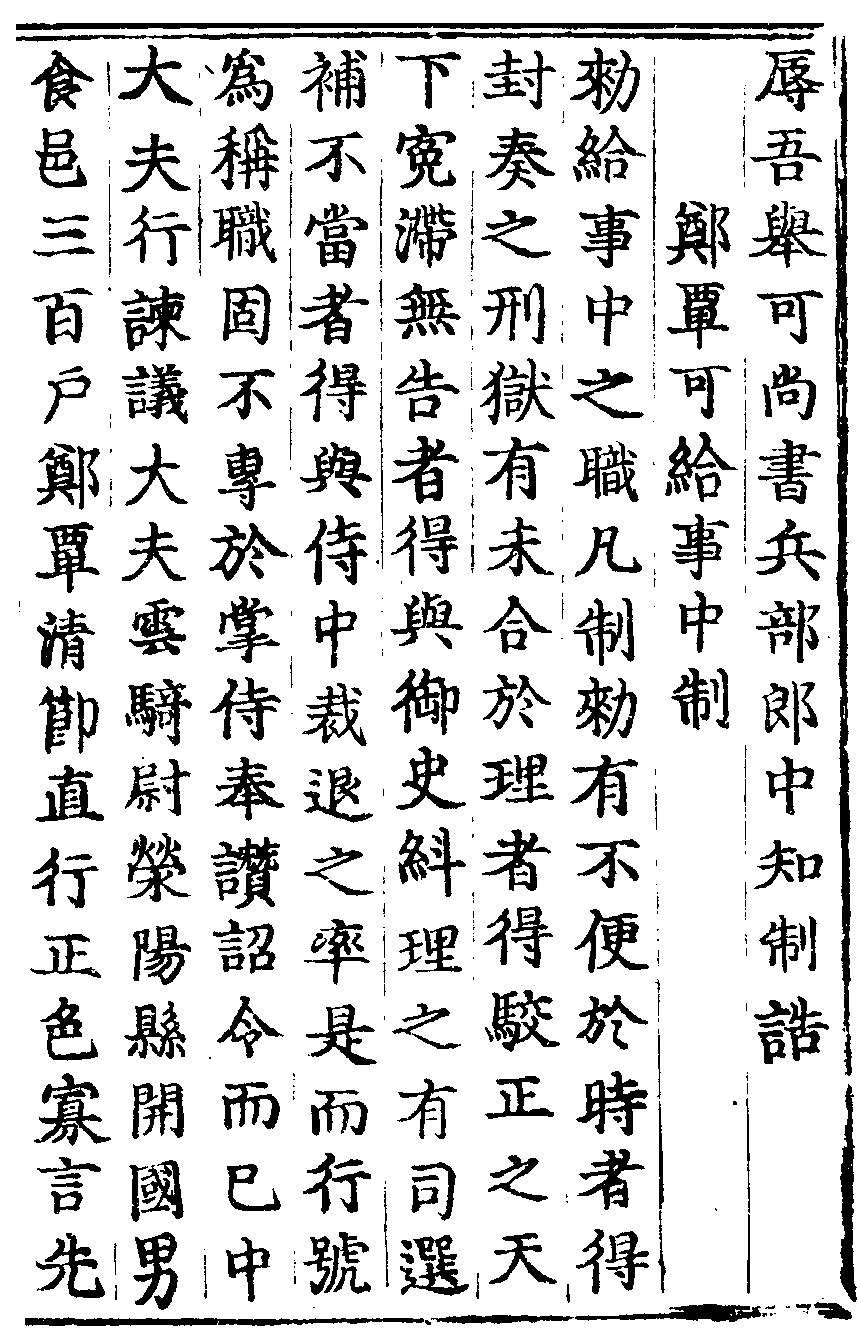 辱吾舉可尚書兵部郎中知制誥
鄭覃可給事中制
勑給事中之職凡制勑有不便於時者得
封奏之刑獄有未合於理者得駮正之天
下寃滯無告者得與御史糾理之有司選
補不當者得與侍中裁退之率是而行號
爲稱職固不專於掌侍奉讚詔令而已中
大夫行諫議大夫雲騎尉滎陽縣開國男
食邑三百户鄭覃清節直行正色寡言先